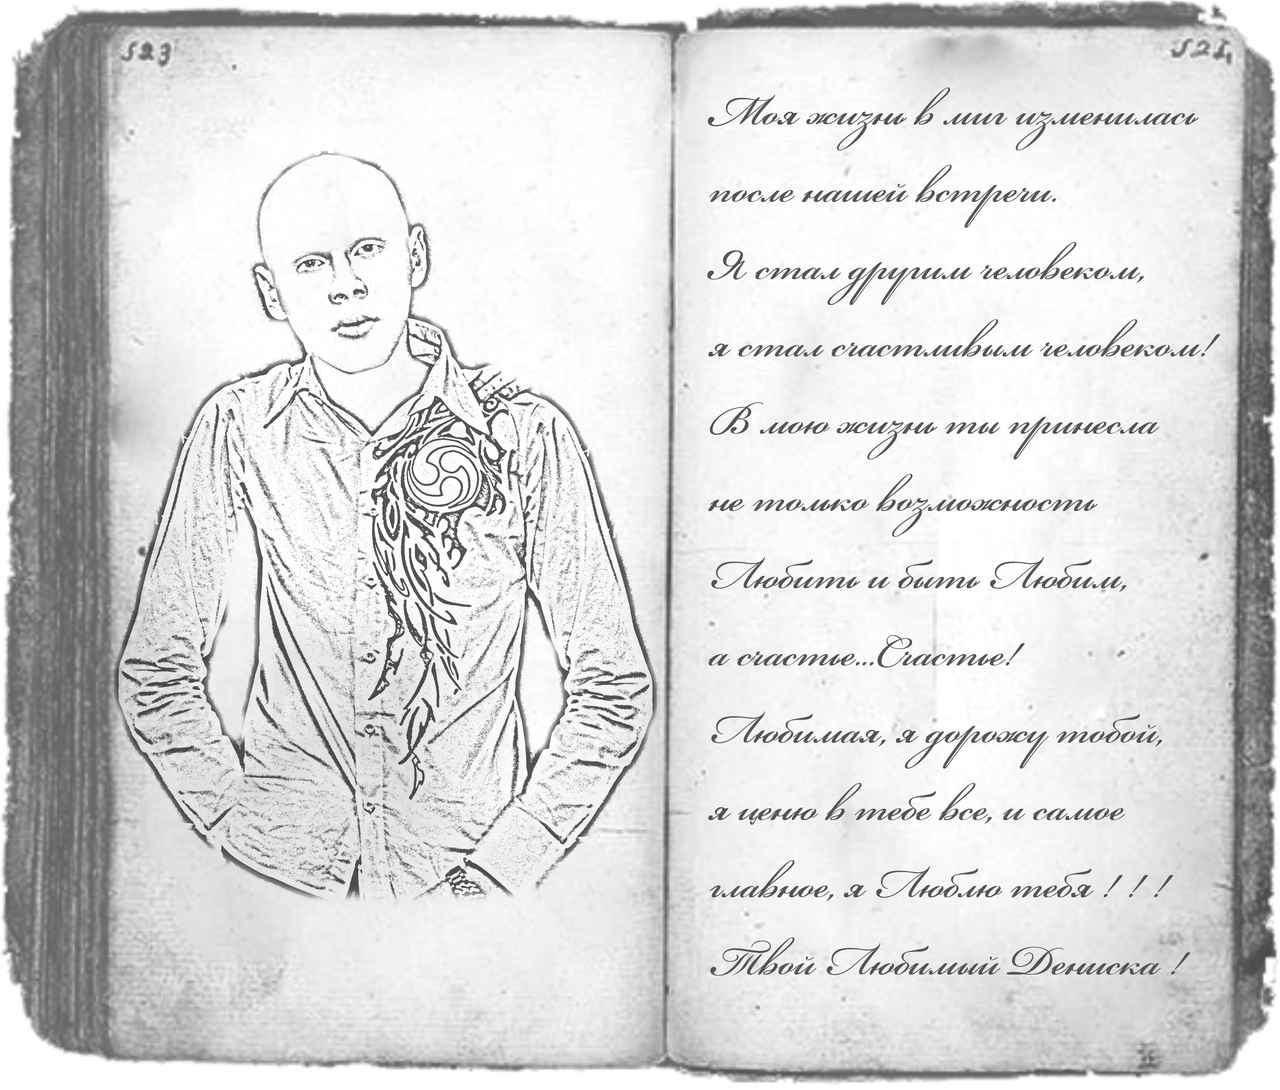 523
524
Моя жизнь в миг изменилась
после нашей встречи.
Я стал другим человеком,
я стал счастливым человеком!
В мою жизнь ты принесла
не только возможность
Любить и быть Любим,
а счастье...Счастье!
Любимая, я дорожу тобой,
я ценю в тебе все, и самое
главное, я Люблю тебя ! ! !
Твой Любимый Дениска !